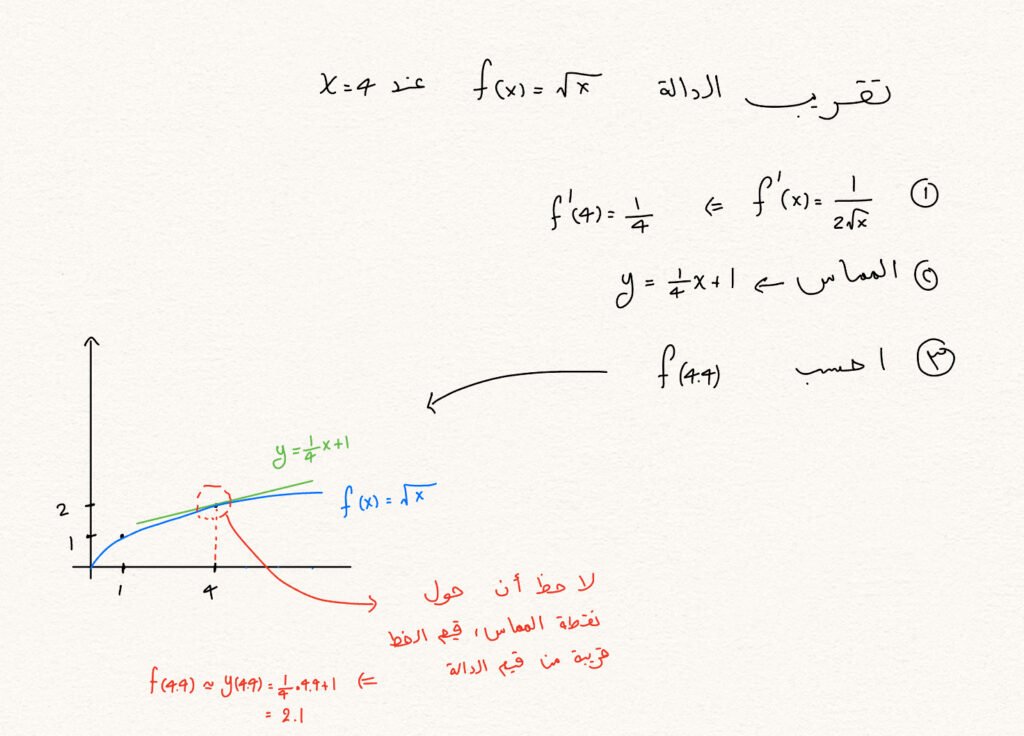 تقريب الدالة f(x) = √x عند x=4
① f'(x) = 1/(2√x) ⇐ f'(4) = 1/4
② المماس ← y = 1/4 x + 1
③ احسب f(4.4)
y = 1/4 x + 1
f(x) = √x
2
1
1
4
لاحظ أن حول
نقطة المماس، قيم الخط
قريبة من قيم الدالة
⇐ f(4.4) ≈ y(4.4) = 1/4 · 4.4 + 1
= 2.1